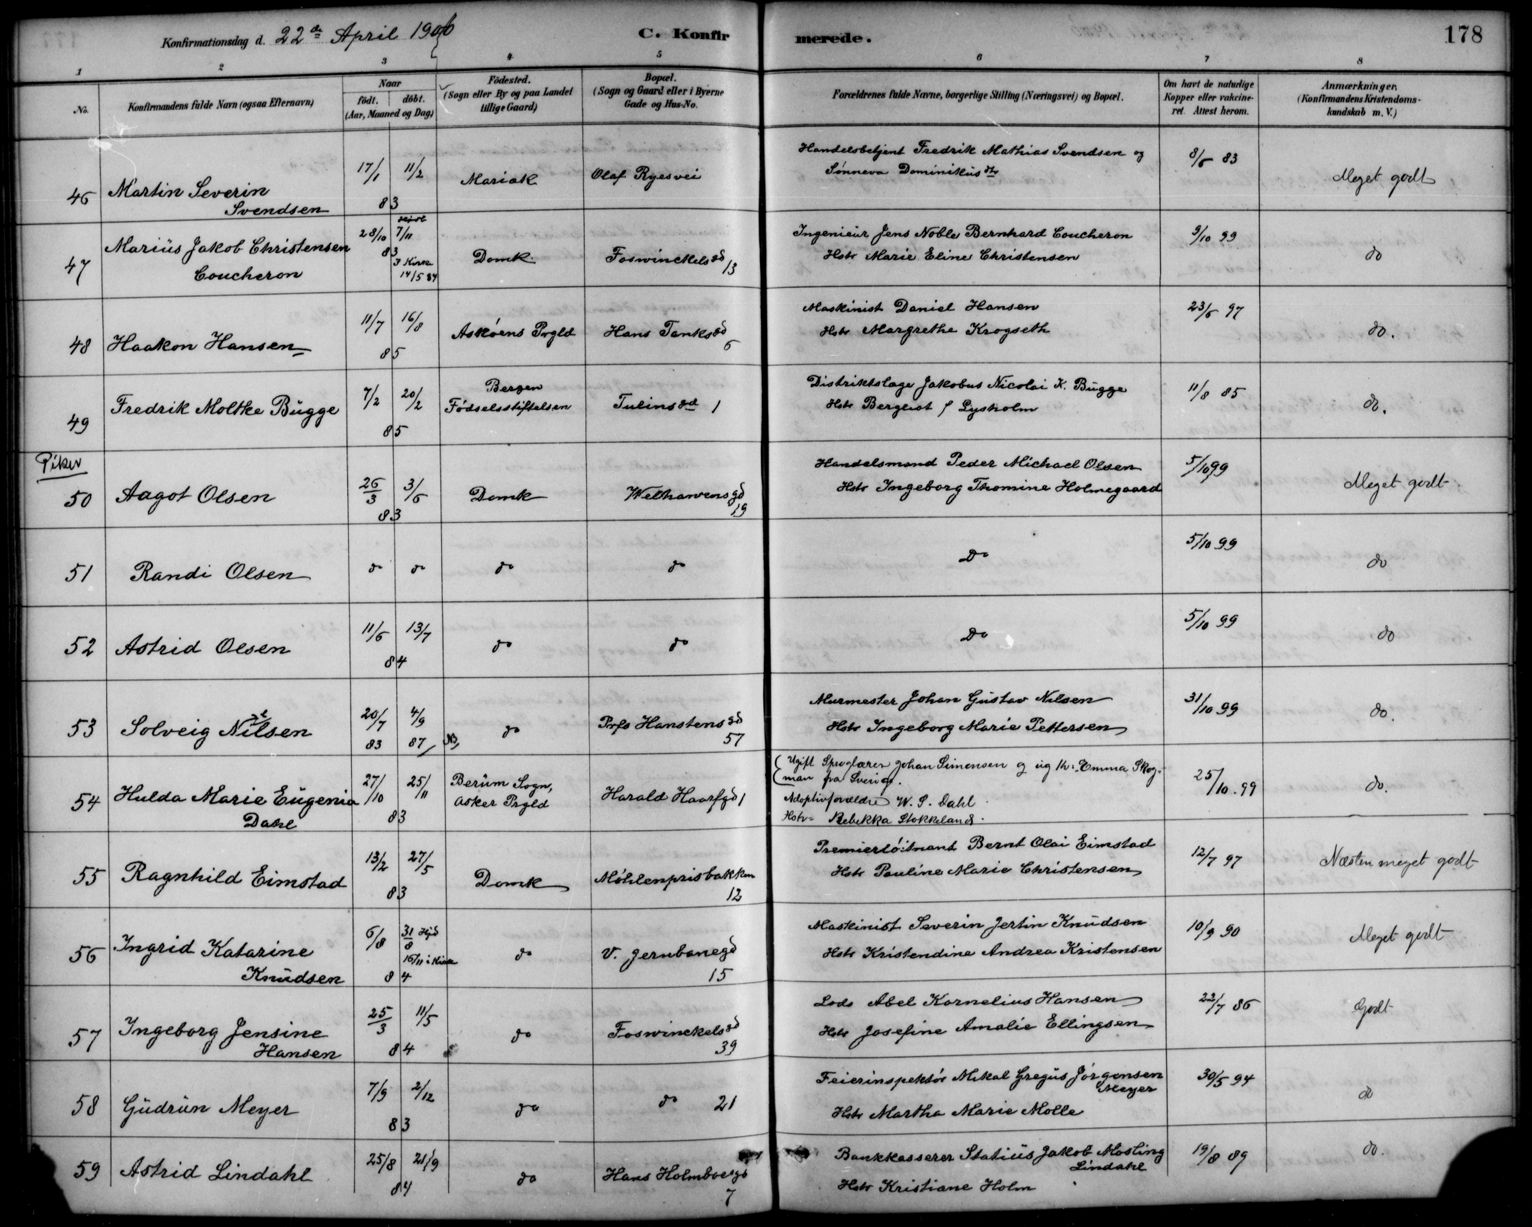 Konfirmationsdag d. 22de April 1900
C. Konfirmerede.
178
1 2 3 4 5 6 7 8
No. Konfirmandens fulde Navn (ogsaa Efternavn)
Naar født. døbt. (Aar, Maaned og Dag)
Fødested. (Sogn eller By og paa Landet tillige Gaard)
Bopæl. (Sogn og Gaard eller i Byerne Gade og Hus-No.
Forældrenes fulde Navne, borgerlige Stilling (Næringsvei) og Bopæl.
Om havt de naturlige Kopper eller vaccineret. Attest herom.
Anmærkninger. (Konfirmandens Kristendomskundskab m. V.)
46 Martin Severin Svendsen 17/1 11/2 83 Mariak Olaf Ryesvei
Handelsbetjent Fredrik Mathias Svendsen og
Sønneva Dominikusdtr 8/6 83 Meget godt
47 Marius Jakob Christensen Coucheron 28/10 7/11 83 i Kirke 14/5 84 Domk. Foswinckelsgd 13
Ingeniør Jens Noble Bernhard Coucheron
Hstr Marie Eline Christensen 9/10 99 do
48 Haakon Hansen 11/7 16/8 85 Askøens Prgld Hans Tanksgd 6
Maskinist Daniel Hansen
Hstr Margrethe Krogseth 23/6 97 do.
49 Fredrik Moltke Bugge 7/2 20/2 85 Bergen Fødselsstiftelsen Tulinsgd 1
Distriktslæge Jakobus Nicolai K. Bugge
Hstr Bergliot f Lysholm 11/8 85 do.
Piker
50 Aagot Olsen 26/3 3/6 83 Domk Welhavensgd 19
Handelsmand Peder Michael Olsen
Hstr Ingeborg Thomine Holmegaard 5/10 99 Meget godt
51 Randi Olsen do do do do
Do 5/10 99 do
52 Astrid Olsen 11/6 13/7 84 do do
Do 5/10 99 do
53 Solveig Nilsen 20/7 83 4/9 87 do Prfs Hanstensgd 57
Murmester Johan Gustav Nilsen
Hstr Ingeborg Marie Pettersen 31/10 99 do.
54 Hulda Marie Eugenia Dahl 27/10 25/11 83 Berum Sogn, Asker Prgld Harald Haarfgd 1
Ugift Johan Simensen og ug Kv. Emma Skogman fra Sverige.
Adoptivforældre W. S. Dahl
Hstr Rebekka Stokkeland. 25/10 99 do.
55 Ragnhild Eimstad 13/2 27/5 83 Domk Møhlenprisbakken 12
Premierløitnant Bernt Olai Eimstad
Hstr Pauline Marie Christensen 12/7 97 Næsten meget godt
56 Ingrid Katarine Knudsen 6/8 31/8 Hjd 16/11 i Kirke 84 do V. Jernbanegd 15
Maskinist Severin Jertin Knudsen
Hstr Kristendine Andrea Kristensen 10/9 90 Meget godt
57 Ingeborg Jensine Hansen 25/3 11/5 84 do Foswinckelsgd 39
Lods Abel Kornelius Hansen
Hstr Josefine Amalie Ellingsen 22/7 86 Godt
58 Gudrun Meyer 7/9 2/12 83 do do 21
Feierinspektør Mikal Gregus Jørgensen Meyer
Hstr Martha Marie Molle 30/5 94 do
59 Astrid Lindahl 25/8 21/9 84 do Hans Holmboesgd 7
Bankkasserer Statius Jakob Mosling Lindahl
Hstr Kristiane Holm 19/8 89 do.